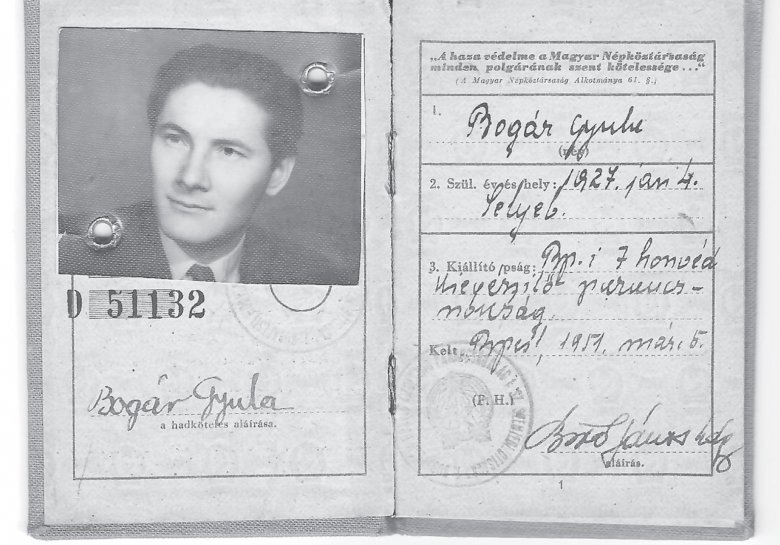 D 51132
Bogár Gyula
a hadköteles aláírása.
„A haza védelme a Magyar Népköztársaság
minden polgárának szent kötelessége...“
(A Magyar Népköztársaság Alkotmánya 61. §.)
1. Bogár Gyula
(név)
2. Szül. év és hely: 1927. jan 4.
Selyeb.
3. Kiállító pság: Bp. i 7 honvéd
kiegészítő parancs-
nokság.
Kelt Bpest, 1951. márc 5.
(P. H.)
János hdgy
aláírás.
1